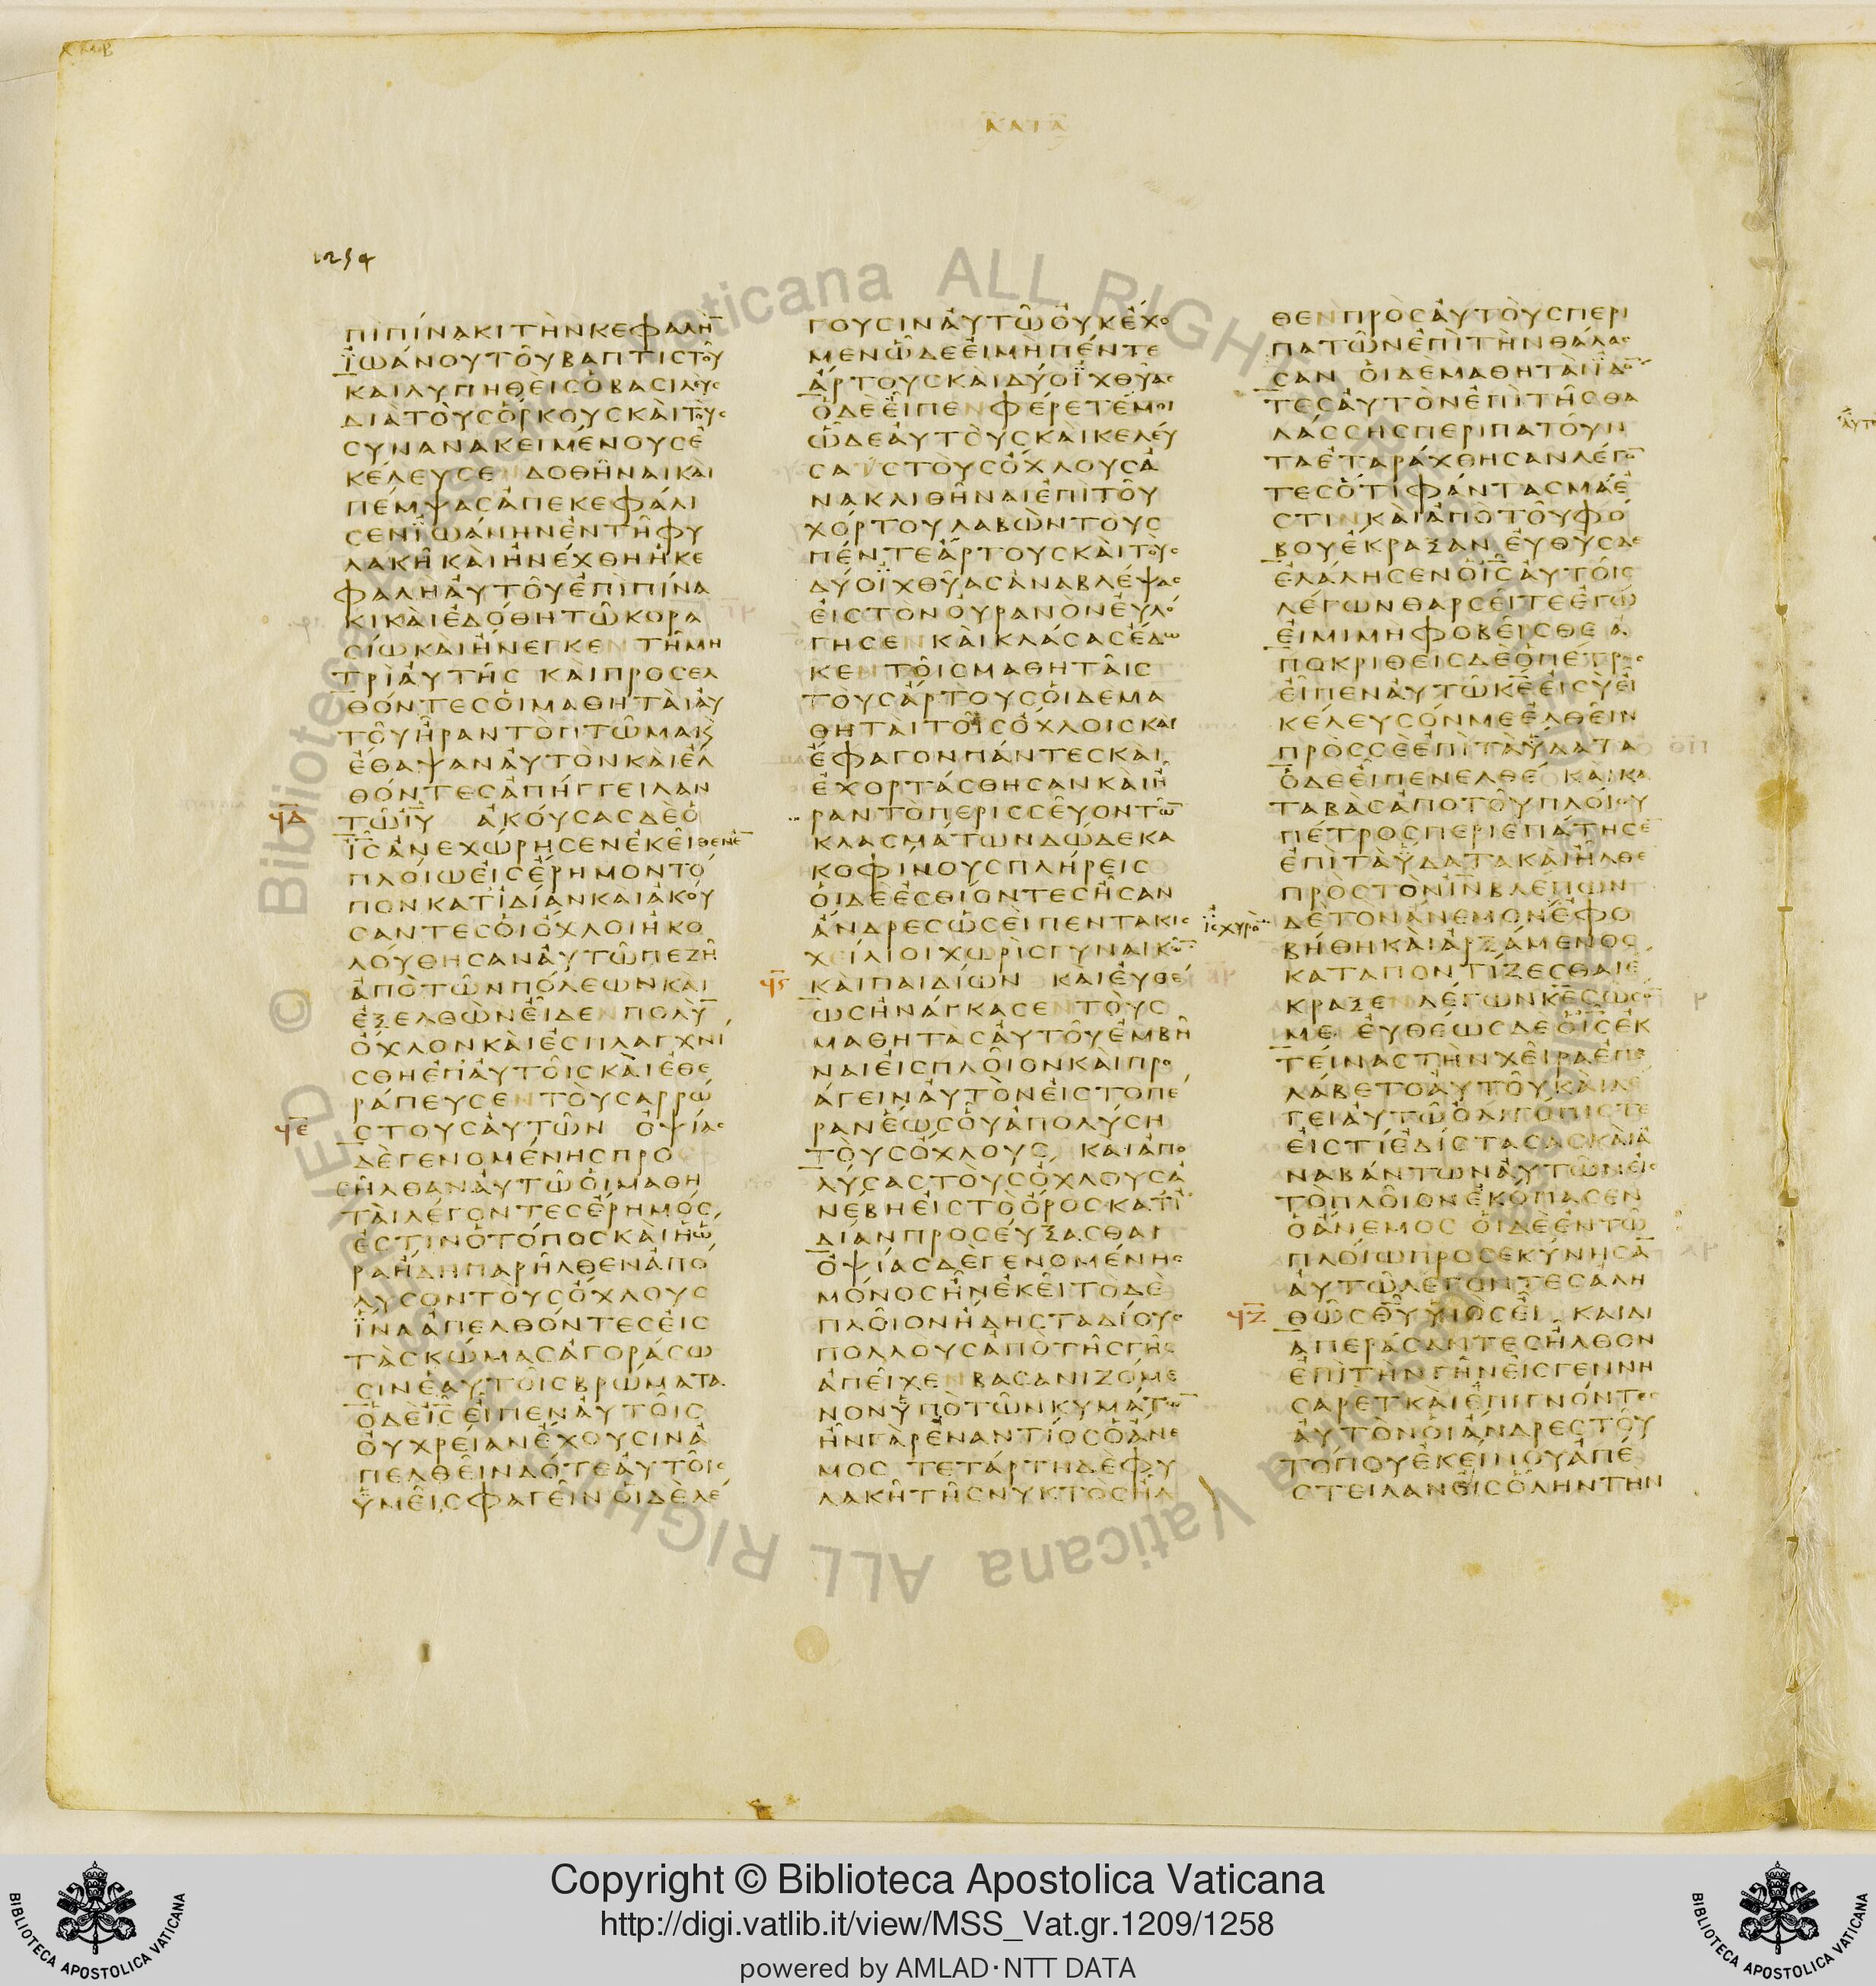 ΚΑΤΑ
1254
ΠΙΠΙΝΑΚΙΤΗΝΚΕΦΑΛΗ̅
ΙΩΑΝΟΥΤΟΥΒΑΠΤΙΣΤΟΥ
ΚΑΙΛΥΠΗΘΕΙΣΟΒΑΣΙΛΕΥΣ
ΔΙΑΤΟΥΣΟΡΚΟΥΣΚΑΙΤΟΥΣ
ΣΥΝΑΝΑΚΕΙΜΕΝΟΥΣΕ
ΚΕΛΕΥΣΕΝ ΔΟΘΗΝΑΙΚΑΙ
ΠΕΜΨΑΣΑΠΕΚΕΦΑΛΙ
ΣΕΝΙΩΑΝΗΝΕΝΤΗΦΥ
ΛΑΚΗΚΑΙΗΝΕΧΘΗΗΚΕ
ΦΑΛΗΑΥΤΟΥΕΠΙΠΙΝΑ
ΚΙΚΑΙΕΔΟΘΗΤΩΚΟΡΑ
ΣΙΩΚΑΙΗΝΕΓΚΕΝΤΗΜΗ
ΤΡΙΑΥΤΗΣ ΚΑΙΠΡΟΣΕΛ
ΘΟΝΤΕΣΟΙΜΑΘΗΤΑΙΑΥ
ΤΟΥΗΡΑΝΤΟΠΤΩΜΑΚΑΙ
ΕΘΑΨΑΝΑΥΤΟΝΚΑΙΕΛ
ΘΟΝΤΕΣΑΠΗΓΓΕΙΛΑΝ
ϤΔ ΤΩΙ̅Υ̅ ΑΚΟΥΣΑΣΔΕΟ
Ι̅Σ̅ΑΝΕΧΩΡΗΣΕΝΕΚΕΙΘΕΝΕ̅
ΠΛΟΙΩΕΙΣΕΡΗΜΟΝΤΟ
ΠΟΝΚΑΤΙΔΙΑΝΚΑΙΑΚΟΥ
ΣΑΝΤΕΣΟΙΟΧΛΟΙΗΚΟ
ΛΟΥΘΗΣΑΝΑΥΤΩΠΕΖΗ
ΑΠΟΤΩΝΠΟΛΕΩΝΚΑΙ
ΕΞΕΛΘΩΝΕΙΔΕΝΠΟΛΥ̅
ΟΧΛΟΝΚΑΙΕΣΠΛΑΓΧΝΙ
ΣΘΗΕΠΑΥΤΟΙΣΚΑΙΕΘΕ
ΡΑΠΕΥΣΕΝΤΟΥΣΑΡΡΩ
ϤΕ ΣΤΟΥΣΑΥΤΩΝ ΟΨΙΑΣ
ΔΕΓΕΝΟΜΕΝΗΣΠΡΟ
ΣΗΛΘΑΝΑΥΤΩΟΙΜΑΘΗ
ΤΑΙΛΕΓΟΝΤΕΣΕΡΗΜΟΣ
ΕΣΤΙΝΟΤΟΠΟΣΚΑΙΗΩ
ΡΑΗΔΗΠΑΡΗΛΘΕΝΑΠΟ
ΛΥΣΟΝΤΟΥΣΟΧΛΟΥΣ
ΙΝΑΑΠΕΛΘΟΝΤΕΣΕΙΣ
ΤΑΣΚΩΜΑΣΑΓΟΡΑΣΩ
ΣΙΝΕΑΥΤΟΙΣΒΡΩΜΑΤΑ
ΟΔΕΙ̅Σ̅ΕΙΠΕΝΑΥΤΟΙΣ
ΟΥΧΡΕΙΑΝΕΧΟΥΣΙΝΑ
ΠΕΛΘΕΙΝΔΟΤΕΑΥΤΟΙΣ
ΥΜΕΙΣΦΑΓΕΙΝΟΙΔΕΛΕ
ΓΟΥΣΙΝΑΥΤΩΟΥΚΕΧΟ
ΜΕΝΩΔΕΕΙΜΗΠΕΝΤΕ
ΑΡΤΟΥΣΚΑΙΔΥΟΙΧΘΥΑΣ
ΟΔΕΕΙΠΕΝΦΕΡΕΤΕΜΟΙ
ΩΔΕΑΥΤΟΥΣΚΑΙΚΕΛΕΥ
ΣΑΤΕΤΟΥΣΟΧΛΟΥΣΑ
ΝΑΚΛΙΘΗΝΑΙΕΠΙΤΟΥ
ΧΟΡΤΟΥΛΑΒΩΝΤΟΥΣ
ΠΕΝΤΕΑΡΤΟΥΣΚΑΙΤΟΥΣ
ΔΥΟΙΧΘΥΑΣΑΝΑΒΛΕΨΑΣ
ΕΙΣΤΟΝΟΥΡΑΝΟΝΕΥΛΟ
ΓΗΣΕΝΚΑΙΚΛΑΣΑΣΕΔΩ
ΚΕΝΤΟΙΣΜΑΘΗΤΑΙΣ
ΤΟΥΣΑΡΤΟΥΣΟΙΔΕΜΑ
ΘΗΤΑΙΤΟΙΣΟΧΛΟΙΣΚΑΙ
ΕΦΑΓΟΝΠΑΝΤΕΣΚΑΙ
ΕΧΟΡΤΑΣΘΗΣΑΝΚΑΙΗ
ΡΑΝΤΟΠΕΡΙΣΣΕΥΟΝΤΩ̅
ΚΛΑΣΜΑΤΩΝΔΩΔΕΚΑ
ΚΟΦΙΝΟΥΣΠΛΗΡΕΙΣ
ΟΙΔΕΕΣΘΙΟΝΤΕΣΗΣΑΝ
ΑΝΔΡΕΣΩΣΕΙΠΕΝΤΑΚΙΣ
ΧΕΙΛΙΟΙΧΩΡΙΣΓΥΝΑΙΚΩ̅
ϤϚ ΚΑΙΠΑΙΔΙΩΝ ΚΑΙΕΥΘΕ
ΩΣΗΝΑΓΚΑΣΕΝΤΟΥΣ
ΜΑΘΗΤΑΣΑΥΤΟΥΕΜΒΗ
ΝΑΙΕΙΣΠΛΟΙΟΝΚΑΙΠΡΟ
ΑΓΕΙΝΑΥΤΟΝΕΙΣΤΟΠΕ
ΡΑΝΕΩΣΟΥΑΠΟΛΥΣΗ
ΤΟΥΣΟΧΛΟΥΣ ΚΑΙΑΠΟ
ΛΥΣΑΣΤΟΥΣΟΧΛΟΥΣΑ
ΝΕΒΗΕΙΣΤΟΟΡΟΣΚΑΤΙ
ΔΙΑΝΠΡΟΣΕΥΞΑΣΘΑΙ
ΟΨΙΑΣΔΕΓΕΝΟΜΕΝΗΣ
ΜΟΝΟΣΗΝΕΚΕΙΤΟΔΕ
ΠΛΟΙΟΝΗΔΗΣΤΑΔΙΟΥΣ
ΠΟΛΛΟΥΣΑΠΟΤΗΣΓΗΣ
ΑΠΕΙΧΕΝΒΑΣΑΝΙΖΟΜΕ
ΝΟΝΥΠΟΤΩΝΚΥΜΑΤΩ̅
ΗΝΓΑΡΕΝΑΝΤΙΟΣΟΑΝΕ
ΜΟΣ ΤΕΤΑΡΤΗΔΕΦΥ
ΛΑΚΗΤΗΣΝΥΚΤΟΣΗΛ
ΘΕΝΠΡΟΣΑΥΤΟΥΣΠΕΡΙ
ΠΑΤΩΝΕΠΙΤΗΝΘΑΛΑΣ
ΣΑΝ ΟΙΔΕΜΑΘΗΤΑΙΙΔΟ̅
ΤΕΣΑΥΤΟΝΕΠΙΤΗΣΘΑ
ΛΑΣΣΗΣΠΕΡΙΠΑΤΟΥΝ
ΤΑΕΤΑΡΑΧΘΗΣΑΝΛΕΓΟ̅
ΤΕΣΟΤΙΦΑΝΤΑΣΜΑΕ
ΣΤΙΝΚΑΙΑΠΟΤΟΥΦΟ
ΒΟΥΕΚΡΑΞΑΝ ΕΥΘΥΣΔΕ
ΕΛΑΛΗΣΕΝΟΙ̅Σ̅ΑΥΤΟΙΣ
ΛΕΓΩΝΘΑΡΣΕΙΤΕΕΓΩ
ΕΙΜΙΜΗΦΟΒΕΙΣΘΕ Α
ΠΟΚΡΙΘΕΙΣΔΕΟΠΕΤΡΟΣ
ΕΙΠΕΝΑΥΤΩΚ̅Ε̅ΕΙΣΥΕΙ
ΚΕΛΕΥΣΟΝΜΕΕΛΘΕΙΝ
ΠΡΟΣΣΕΕΠΙΤΑΥΔΑΤΑ
ΟΔΕΕΙΠΕΝΕΛΘΕ ΚΑΙΚΑ
ΤΑΒΑΣΑΠΟΤΟΥΠΛΟΙΟΥ
ΠΕΤΡΟΣΠΕΡΙΕΠΑΤΗΣΕ̅
ΕΠΙΤΑΥΔΑΤΑΚΑΙΗΛΘΕ
ΠΡΟΣΤΟΝΙ̅Ν̅ΒΛΕΠΩΝ
ΙΣΧΥΡΟ̅ ΔΕΤΟΝΑΝΕΜΟΝΕΦΟ
ΒΗΘΗΚΑΙΑΡΞΑΜΕΝΟΣ
ΚΑΤΑΠΟΝΤΙΖΕΣΘΑΙΕ
ΚΡΑΞΕΝΛΕΓΩΝΚ̅Ε̅ΣΩΣΟ̅
ΜΕ ΕΥΘΕΩΣΔΕΟΙ̅Σ̅ΕΚ
ΤΕΙΝΑΣΤΗΝΧΕΙΡΑΕΠΕ
ΛΑΒΕΤΟΑΥΤΟΥΚΑΙΛΕ
ΓΕΙΑΥΤΩΟΛΙΓΟΠΙΣΤΕ
ΕΙΣΤΙΕΔΙΣΤΑΣΑΣΚΑΙΑ
ΝΑΒΑΝΤΩΝΑΥΤΩΝΕΙΣ
ΤΟΠΛΟΙΟΝΕΚΟΠΑΣΕΝ
ΟΑΝΕΜΟΣ ΟΙΔΕΕΝΤΩ
ΠΛΟΙΩΠΡΟΣΕΚΥΝΗΣΑ̅
ΑΥΤΩΛΕΓΟΝΤΕΣΑΛΗ
ϤΖ ΘΩΣΘ̅Υ̅ΥΙΟΣΕΙ ΚΑΙΔΙ
ΑΠΕΡΑΣΑΝΤΕΣΗΛΘΟΝ
ΕΠΙΤΗΝΓΗΝΕΙΣΓΕΝΝΗ
ΣΑΡΕΤΚΑΙΕΠΙΓΝΟΝΤΕΣ
ΑΥΤΟΝΟΙΑΝΔΡΕΣΤΟΥ
ΤΟΠΟΥΕΚΕΙΝΟΥΑΠΕ
ΣΤΕΙΛΑΝΕΙΣΟΛΗΝΤΗΝ
© Biblioteca Apostolica Vaticana ALL RIGHTS RESERVED
Copyright © Biblioteca Apostolica Vaticana
http://digi.vatlib.it/view/MSS_Vat.gr.1209/1258
powered by AMLAD·NTT DATA
BIBLIOTECA APOSTOLICA VATICANA
BIBLIOTECA APOSTOLICA VATICANA